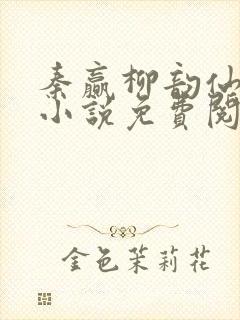 秦赢柳韵仙
小说免费阅
金色茉莉花